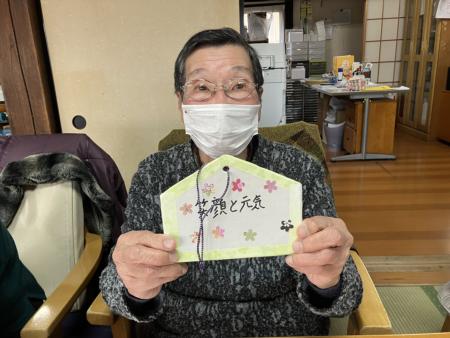 笑顔と元気